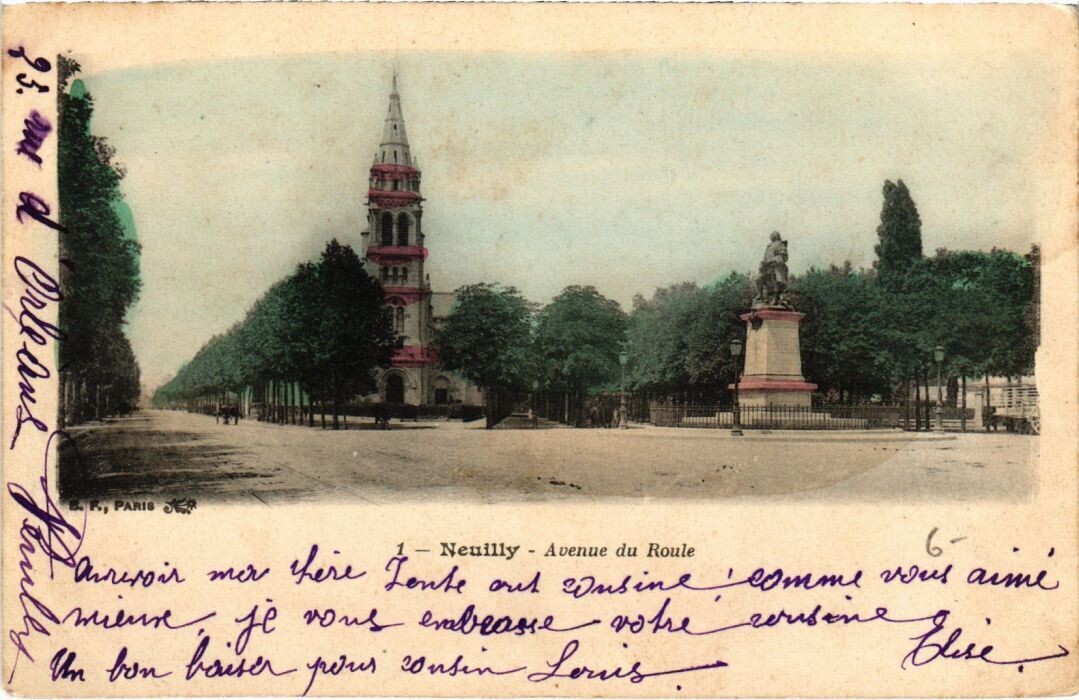 E. F., PARIS
1 - Neuilly - Avenue du Roule
6-
Aurevoir mon chère Tente out cousine, comme vous aimé
mieux, je vous embrasse votre cousine
Elise.
Un bon baiser pour cousin Louis
23. rue d Orleans
Neuilly